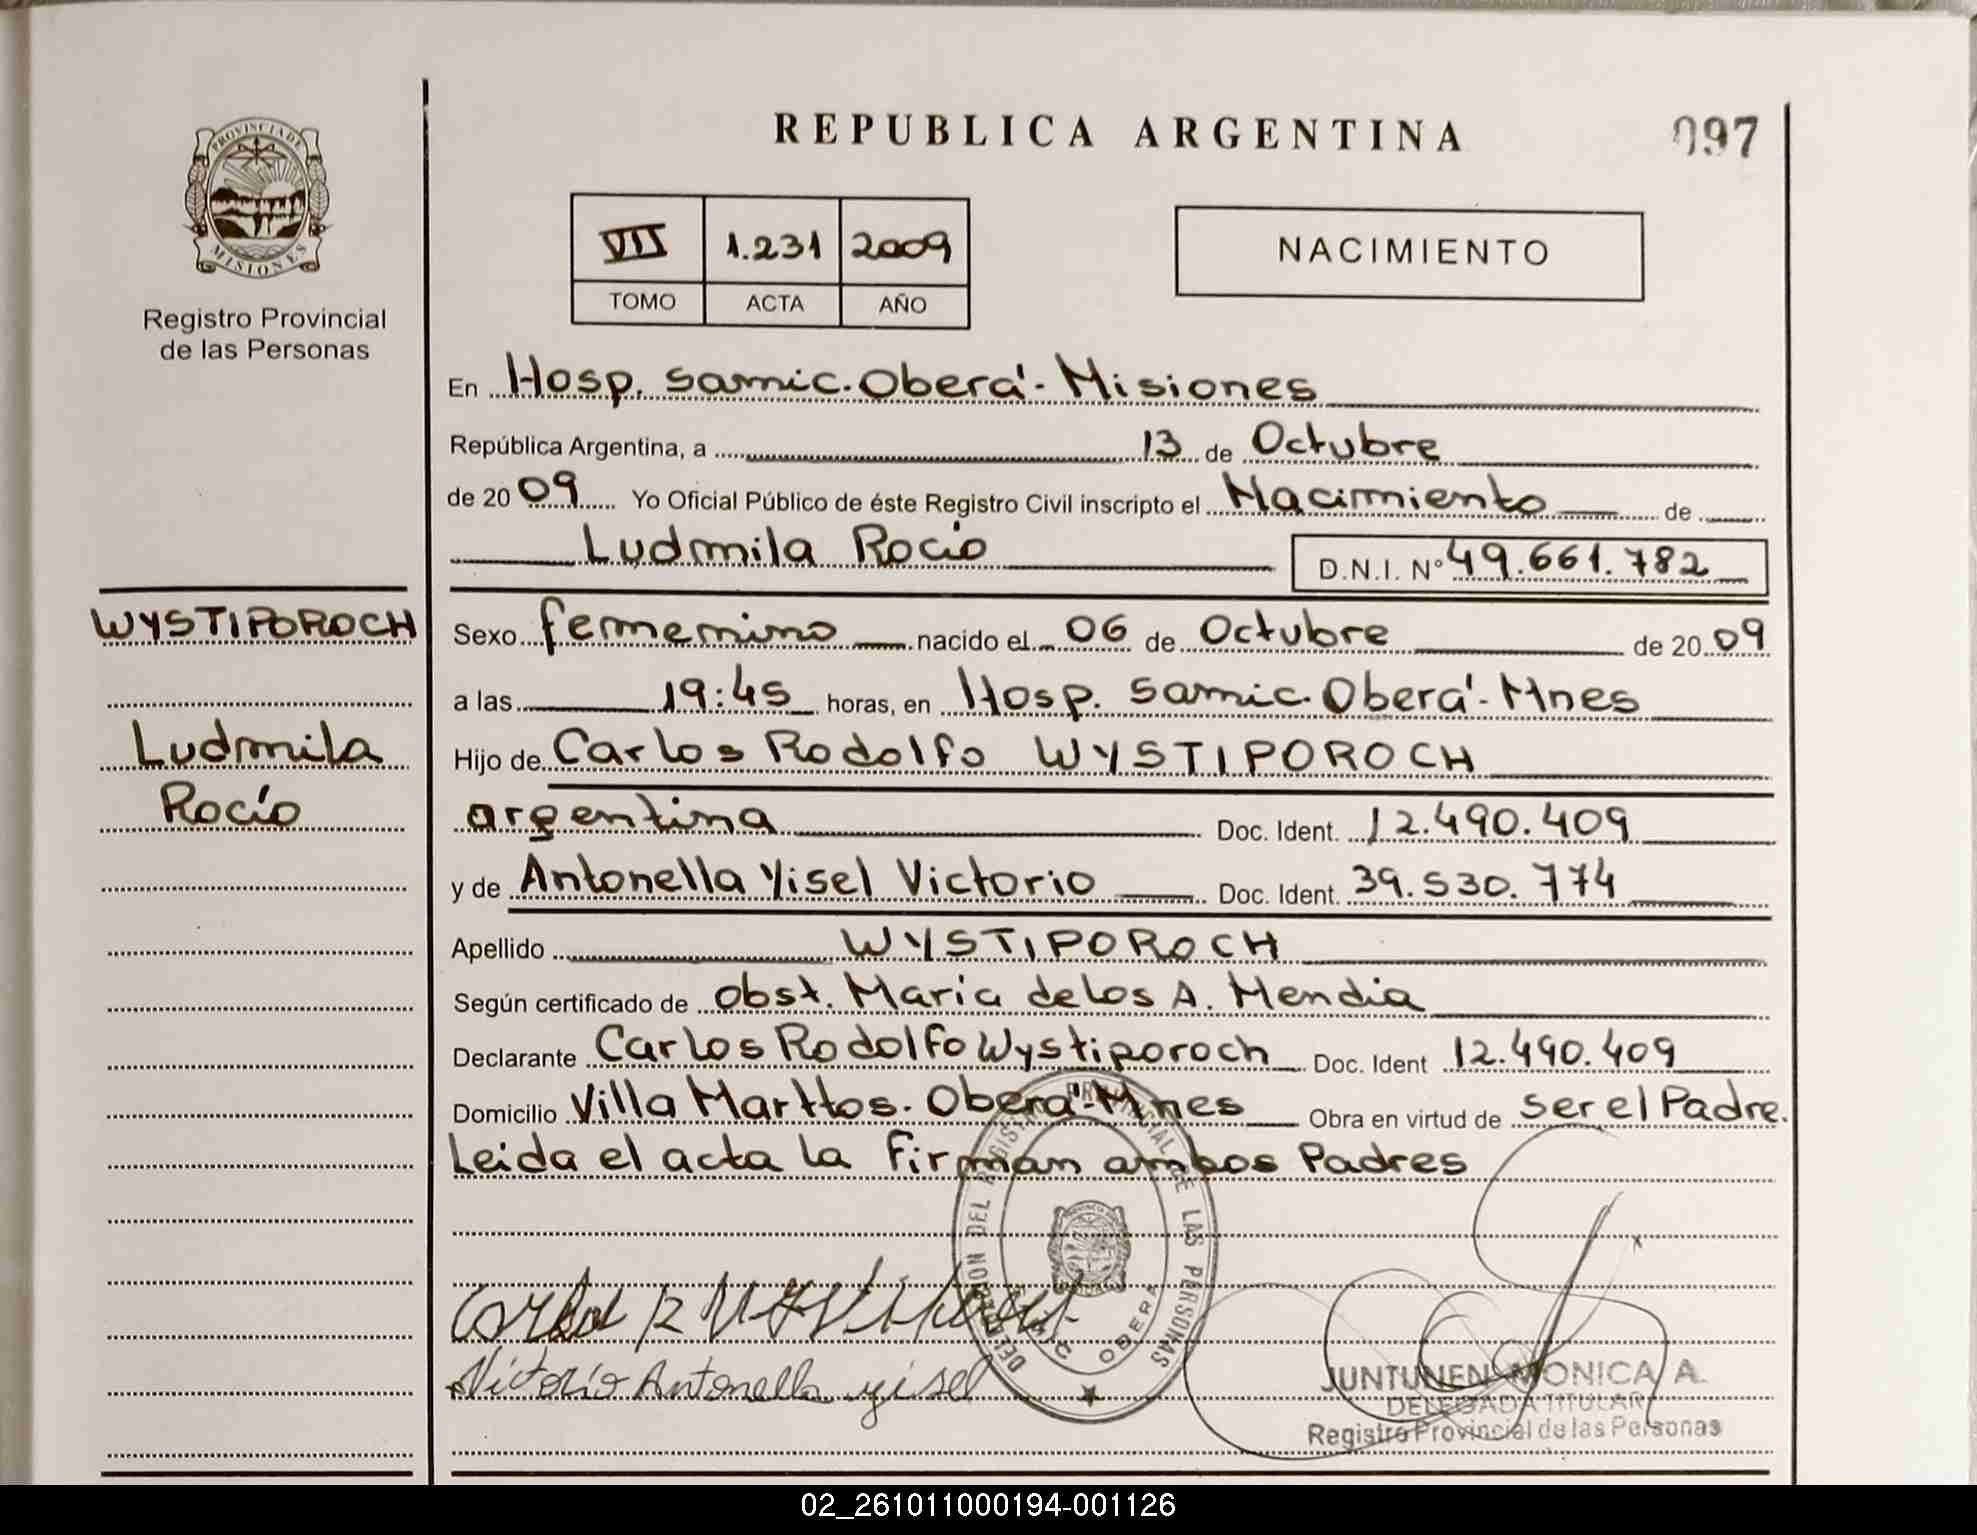 REPUBLICA ARGENTINA
097
PROVINCIA DE
MISIONES
Registro Provincial
de las Personas
VII 1.231 2009
TOMO ACTA AÑO
NACIMIENTO
En Hosp. Samic. Oberá - Misiones
República Argentina, a 13 de Octubre
de 2009 Yo Oficial Público de éste Registro Civil inscripto el Nacimiento de
Ludmila Rocio D.N.I. Nº 49.661.782
WYSTIPOROCH
Ludmila
Rocío
Sexo femenino nacido el 06 de Octubre de 2009
a las 19:45 horas, en Hosp. Samic. Oberá - Mnes
Hijo de Carlos Rodolfo WYSTIPOROCH
argentina Doc. Ident. 12.490.409
y de Antonella Yisel Victorio Doc. Ident. 39.530.774
Apellido WYSTIPOROCH
Según certificado de Obst. Maria de los A. Mendia
Declarante Carlos Rodolfo Wystiporoch Doc. Ident 12.490.409
Domicilio Villa Marttos. Oberá - Mnes Obra en virtud de ser el Padre.
Leida el acta la Firman ambos Padres
DEL REGISTRO PROVINCIAL DE LAS PERSONAS
OBERA
Victorio Antonella yisel
JUNTUNEN MONICA A.
DELEGADA TITULAR
Registro Provincial de las Personas
02_261011000194-001126